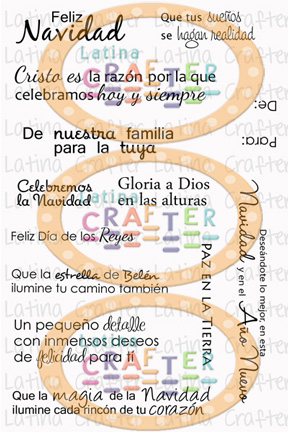 Feliz
Navidad
Que tus sueños
se hagan realidad
Cristo es la razón por la que
celebramos hoy y siempre
De:
Para:
De nuestra familia
para la tuya
Celebremos
la Navidad
Gloria a Dios
en las alturas
PAZ EN LA TIERRA
Deseándote lo mejor, en esta
Navidad y en el Año Nuevo
Feliz Día de los Reyes
Que la estrella de Belén
ilumine tu camino también
Un pequeño detalle
con inmensos deseos
de felicidad para ti
Que la magia de la Navidad
ilumine cada rincón de tu corazón
Latina
CRAFTER
Latina
CRAFTER
Latina
CRAFTER